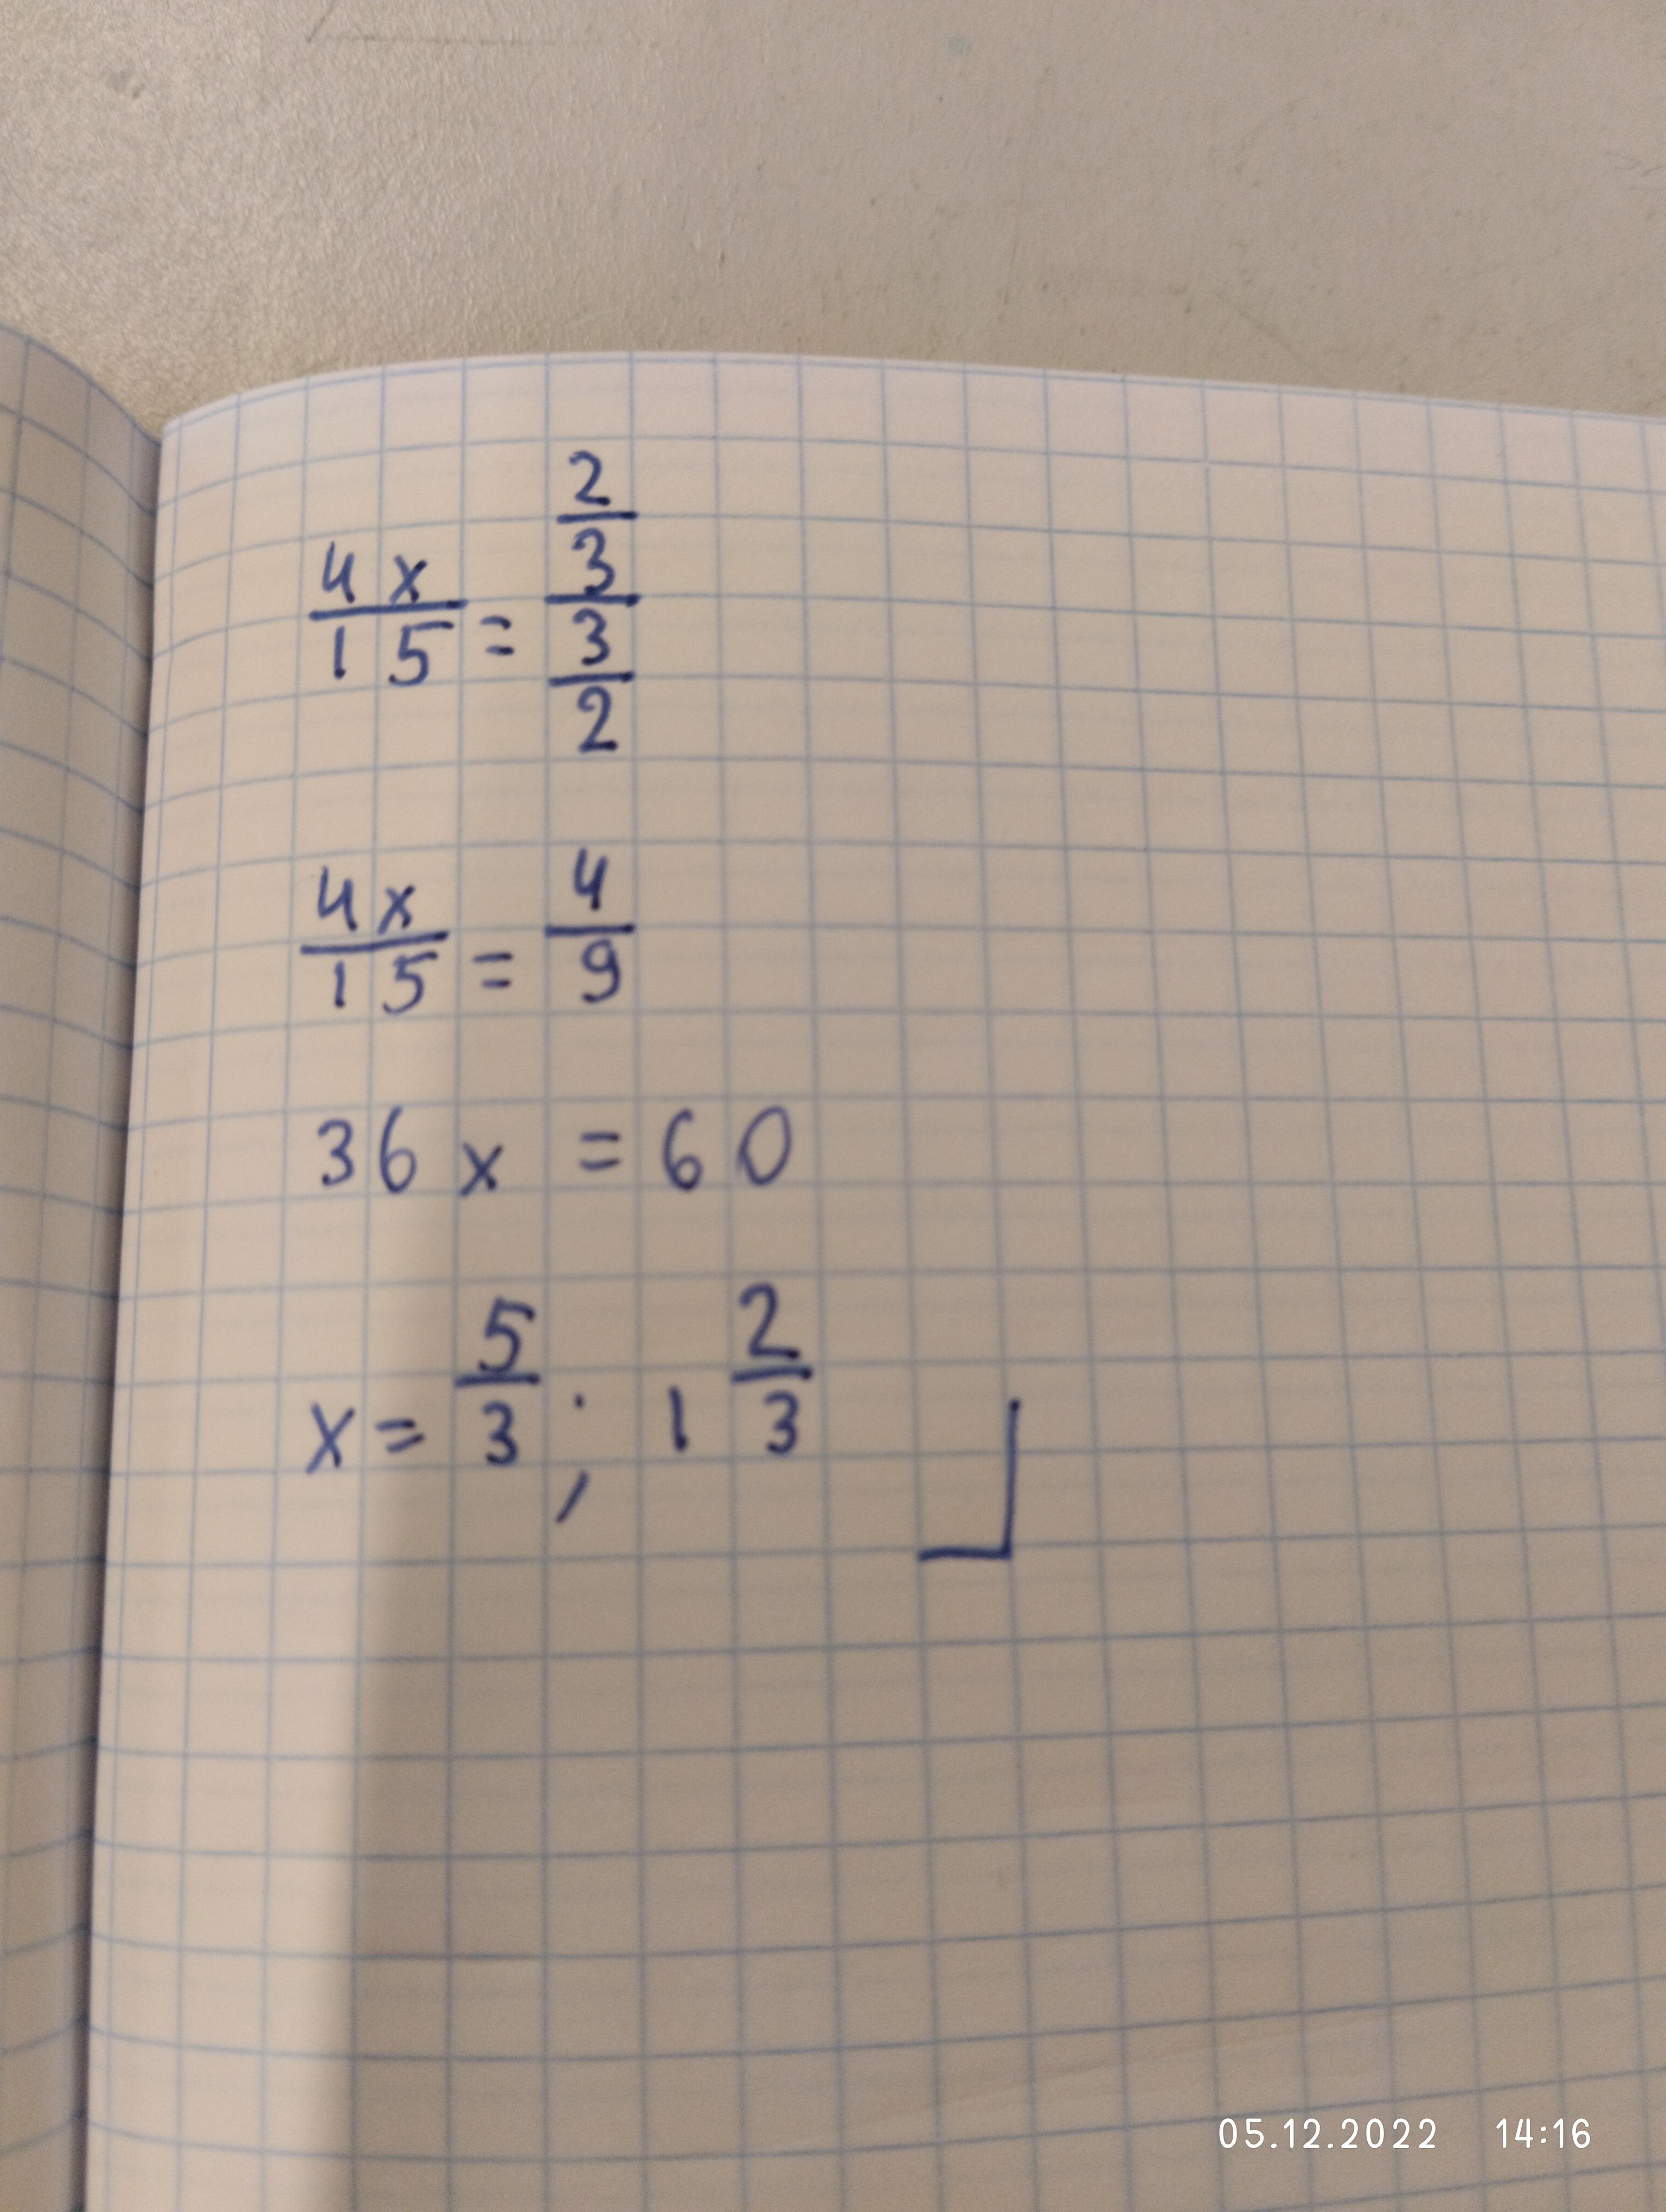 4x/15 = (2/3)/(3/2)
4x/15 = 4/9
36x = 60
x = 5/3 ; 1 2/3
05.12.2022 14:16